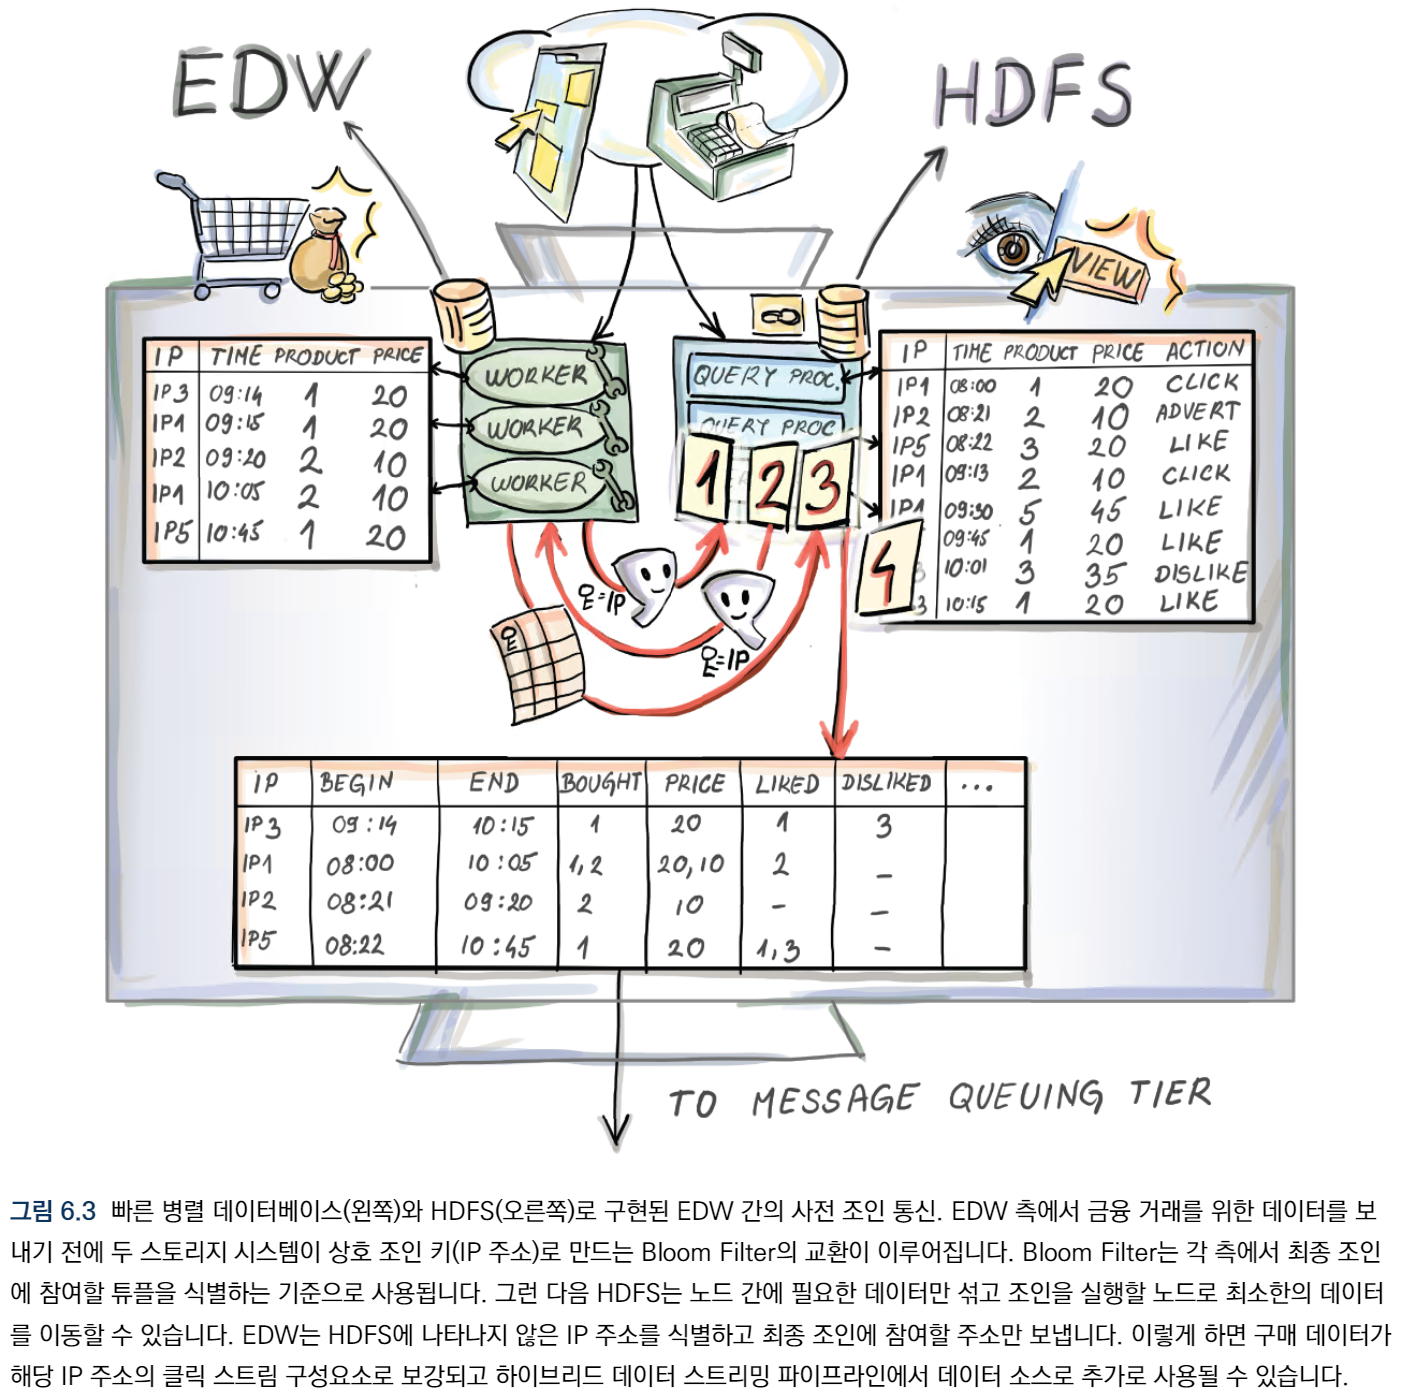 EDW
HDFS
VIEW
IP TIME PRODUCT PRICE
IP3 09:14 1 20
IP1 09:15 1 20
IP2 09:20 2 10
IP1 10:05 2 10
IP5 10:45 1 20
WORKER
WORKER
WORKER
QUERY PROC.
QUERY PROC
1 2 3
4
IP TIME PRODUCT PRICE ACTION
IP1 08:00 1 20 CLICK
IP2 08:21 2 10 ADVERT
IP5 08:22 3 20 LIKE
IP1 09:13 2 10 CLICK
IP1 09:30 5 45 LIKE
09:45 1 20 LIKE
3 10:01 3 35 DISLIKE
3 10:15 1 20 LIKE
=IP
=IP
IP BEGIN END BOUGHT PRICE LIKED DISLIKED ...
IP3 09:14 10:15 1 20 1 3
IP1 08:00 10:05 1,2 20,10 2 –
IP2 08:21 09:20 2 10 – –
IP5 08:22 10:45 1 20 1,3 –
TO MESSAGE QUEUING TIER
그림 6.3 빠른 병렬 데이터베이스(왼쪽)와 HDFS(오른쪽)로 구현된 EDW 간의 사전 조인 통신. EDW 측에서 금융 거래를 위한 데이터를 보
내기 전에 두 스토리지 시스템이 상호 조인 키(IP 주소)로 만드는 Bloom Filter의 교환이 이루어집니다. Bloom Filter는 각 측에서 최종 조인
에 참여할 튜플을 식별하는 기준으로 사용됩니다. 그런 다음 HDFS는 노드 간에 필요한 데이터만 섞고 조인을 실행할 노드로 최소한의 데이터
를 이동할 수 있습니다. EDW는 HDFS에 나타나지 않은 IP 주소를 식별하고 최종 조인에 참여할 주소만 보냅니다. 이렇게 하면 구매 데이터가
해당 IP 주소의 클릭 스트림 구성요소로 보강되고 하이브리드 데이터 스트리밍 파이프라인에서 데이터 소스로 추가로 사용될 수 있습니다.